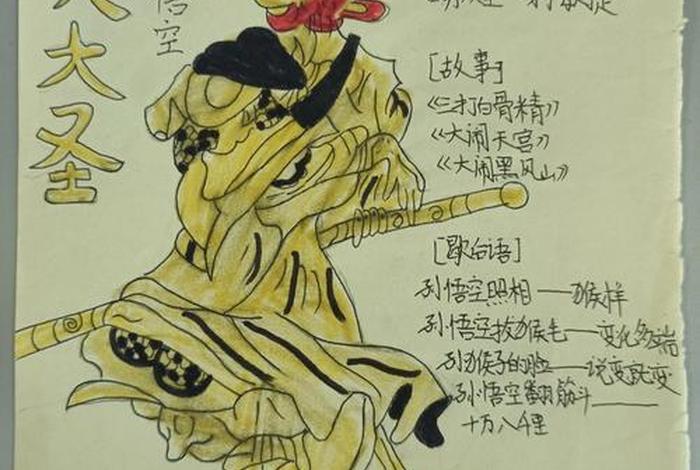 大圣
悟空
[故事]
《三打白骨精》
《大闹天宫》
《大闹黑风山》
[歇后语]
孙悟空照相——猴样
孙悟空拔猴毛——变化多端
孙猴子的脸——说变就变
孙悟空翻筋斗——
十万八千里